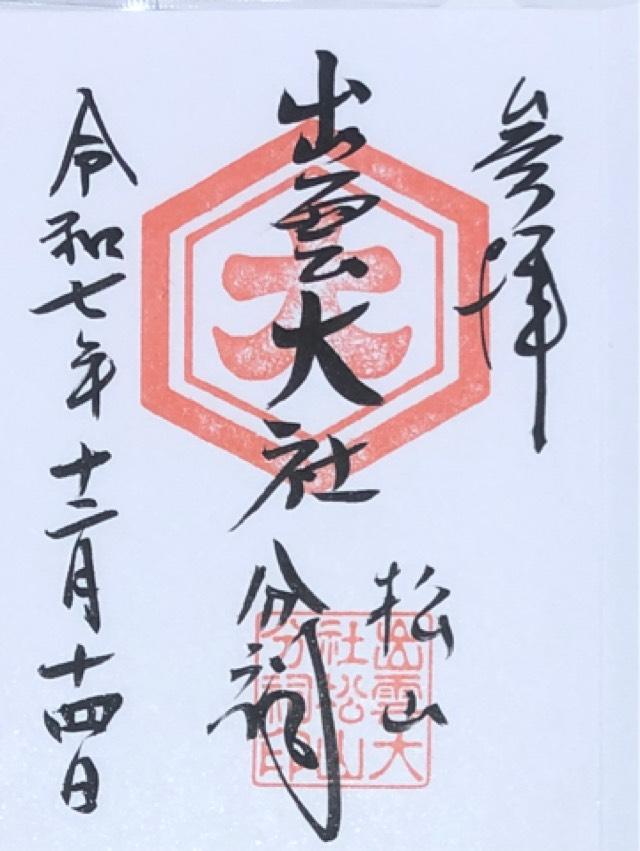 参拝
出雲大社
松山
分祠
令和七年十二月十四日
大
出雲大
社松山
分祠印